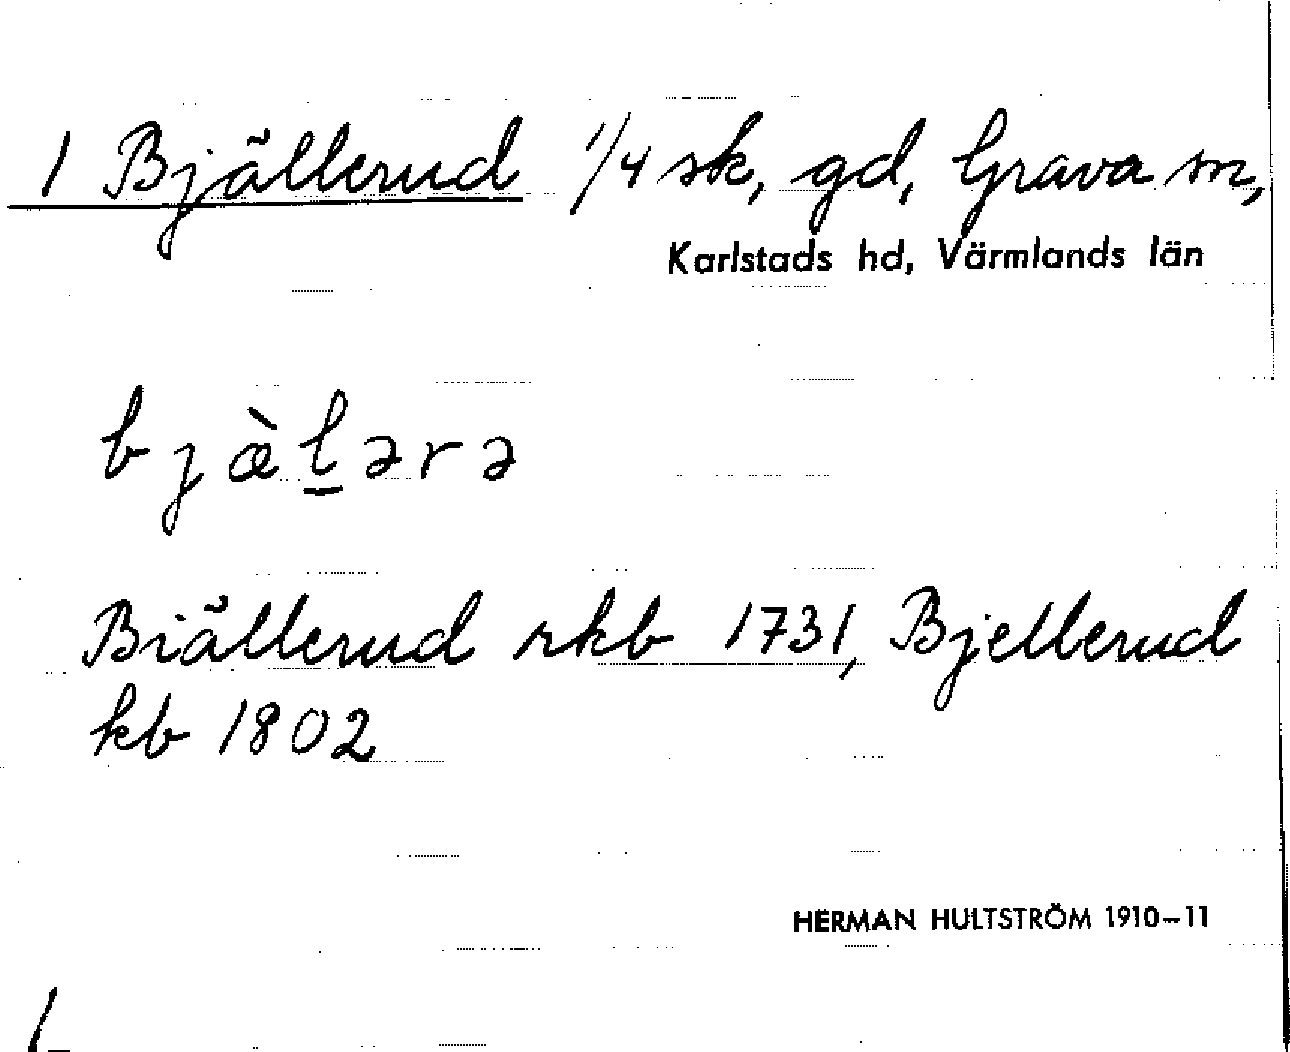 1 Bjällerud 1/4 sk, gd, Grava sn,
Karlstads hd, Värmlands län
bjæ̀l̠ərə
Biällerud rkb 1731, Bjellerud
kb 1802
HERMAN HULTSTRÖM 1910–11